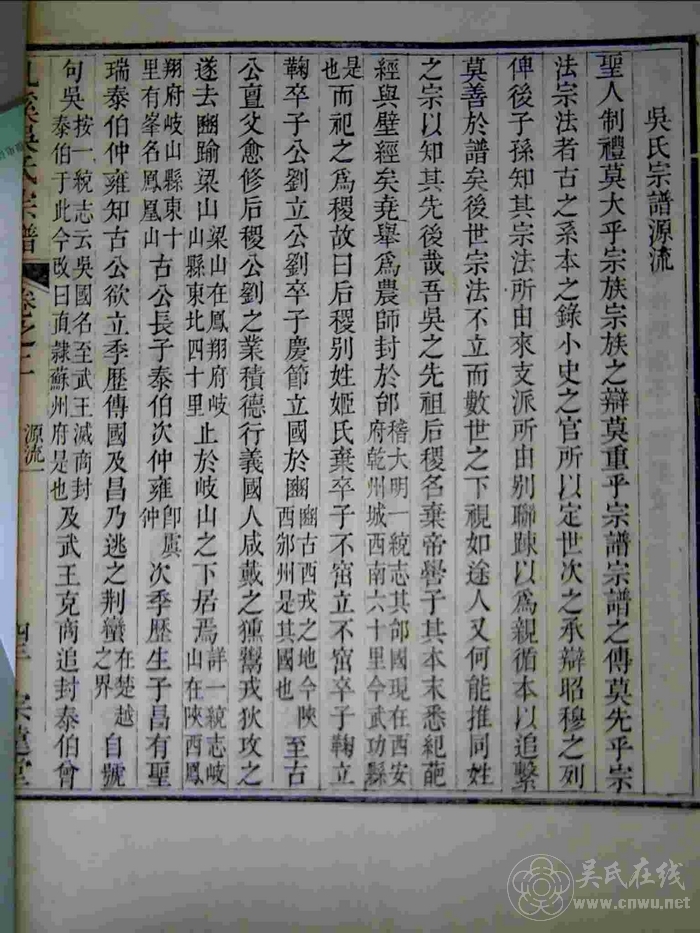 吳氏宗譜源流
聖人制禮莫大乎宗族宗族之辯莫重乎宗譜宗譜之傳莫先乎宗
法宗法者古之系本之錄小史之官所以定世次之承辯昭穆之列
俾後子孫知其宗法所由來支派所由别聯踈以為親循本以追繫
莫善於譜矣後世宗法不立而數世之下視如途人又何能推同姓
之宗以知其先後哉吾吳之先祖后稷名棄帝嚳子其本末悉紀葩
經與壁經矣堯舉為農師封於邰稽大明一統志其邰國現在西安府乾州城西南六十里今武功縣
是也而祀之為稷故曰后稷别姓姬氏棄卒子不窋立不窋卒子鞠立
鞠卒子公劉立公劉卒子慶節立國於豳豳古西戎之地今陝西邠州是其國也至古
公亶父愈修后稷公劉之業積德行義國人咸戴之獯鬻戎狄攻之
遂去豳踰梁山梁山在鳳翔府岐山縣東北四十里止於岐山之下居焉詳一統志岐山在陝西鳳
翔府岐山縣東十里有峯名鳳凰山古公長子泰伯次仲雍即虞仲次季歷生子昌有聖
瑞泰伯仲雍知古公欲立季歷傳國及昌乃逃之荆蠻在楚越之界自號
句吳按一統志云吳國名至武王滅商封泰伯于此今改曰直隸蘇州府是也及武王克商追封泰伯曾
吳氏宗譜
卷之
源流
吴氏在线
www.cnwu.net